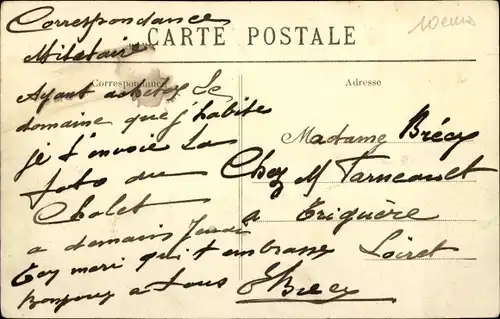 Correspondance
Militair
CARTE POSTALE
Correspondance
Adresse
Ayant acheter le
domaine que j'habite
je t'envoie la
foto du
Chalet
a demain Jeudi
Ton mari qui t'embrasse
Bonjour a tous
HBrecy
Madame Brécy
Chez M Tarneault
a Triguère
Loiret